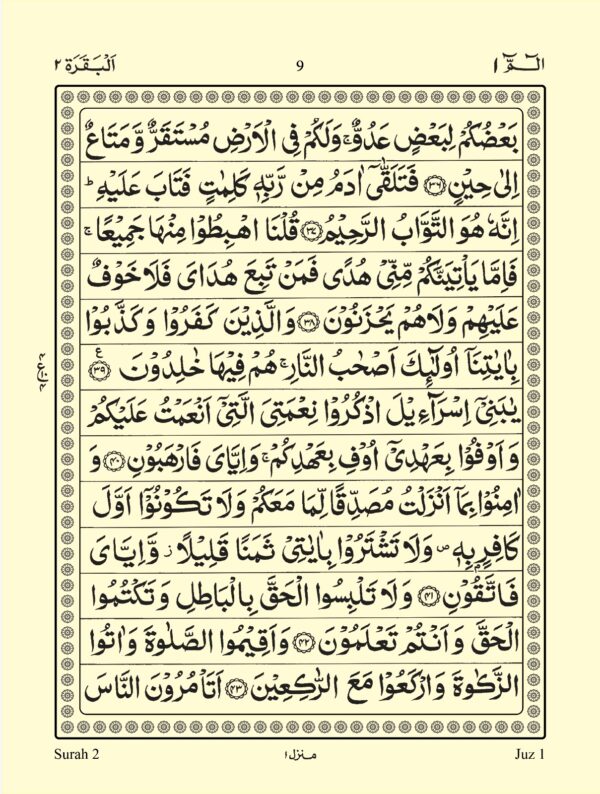 الٓمّٓ ١ 9 اَلْبَقَرَة ٢
بَعْضُكُمْ لِبَعْضٍ عَدُوٌّ ۚ وَلَكُمْ فِی الْاَرْضِ مُسْتَقَرٌّ وَّ مَتَاعٌ
اِلٰی حِیْنٍ ﴿۳۶﴾ فَتَلَقّٰۤی اٰدَمُ مِنْ رَّبِّهٖ كَلِمٰتٍ فَتَابَ عَلَیْهِ ؕ
اِنَّهٗ هُوَ التَّوَّابُ الرَّحِیْمُ ﴿۳۷﴾ قُلْنَا اهْبِطُوْا مِنْهَا جَمِیْعًا ۚ
فَاِمَّا یَاْتِیَنَّكُمْ مِّنِّیْ هُدًی فَمَنْ تَبِعَ هُدَایَ فَلَا خَوْفٌ
عَلَیْهِمْ وَلَا هُمْ یَحْزَنُوْنَ ﴿۳۸﴾ وَالَّذِیْنَ كَفَرُوْا وَ كَذَّبُوْا
بِاٰیٰتِنَاۤ اُولٰٓئِكَ اَصْحٰبُ النَّارِ ۚ هُمْ فِیْهَا خٰلِدُوْنَ ﴿۳۹﴾ ع
یٰبَنِیْۤ اِسْرَآءِیْلَ اذْكُرُوْا نِعْمَتِیَ الَّتِیْۤ اَنْعَمْتُ عَلَیْكُمْ
وَ اَوْفُوْا بِعَهْدِیْۤ اُوْفِ بِعَهْدِكُمْ ۚ وَاِیَّایَ فَارْهَبُوْنِ ﴿۴۰﴾ وَ
اٰمِنُوْا بِمَاۤ اَنْزَلْتُ مُصَدِّقًا لِّمَا مَعَكُمْ وَلَا تَكُوْنُوْۤا اَوَّلَ
كَافِرٍۭ بِهٖ ۪ وَلَا تَشْتَرُوْا بِاٰیٰتِیْ ثَمَنًا قَلِیْلًا ؗ وَّاِیَّایَ
فَاتَّقُوْنِ ﴿۴۱﴾ وَلَا تَلْبِسُوا الْحَقَّ بِالْبَاطِلِ وَ تَكْتُمُوا
الْحَقَّ وَ اَنْتُمْ تَعْلَمُوْنَ ﴿۴۲﴾ وَاَقِیْمُوا الصَّلٰوةَ وَاٰتُوا
الزَّكٰوةَ وَارْكَعُوْا مَعَ الرّٰكِعِیْنَ ﴿۴۳﴾ اَتَاْمُرُوْنَ النَّاسَ
Surah 2 منزل ١ Juz 1